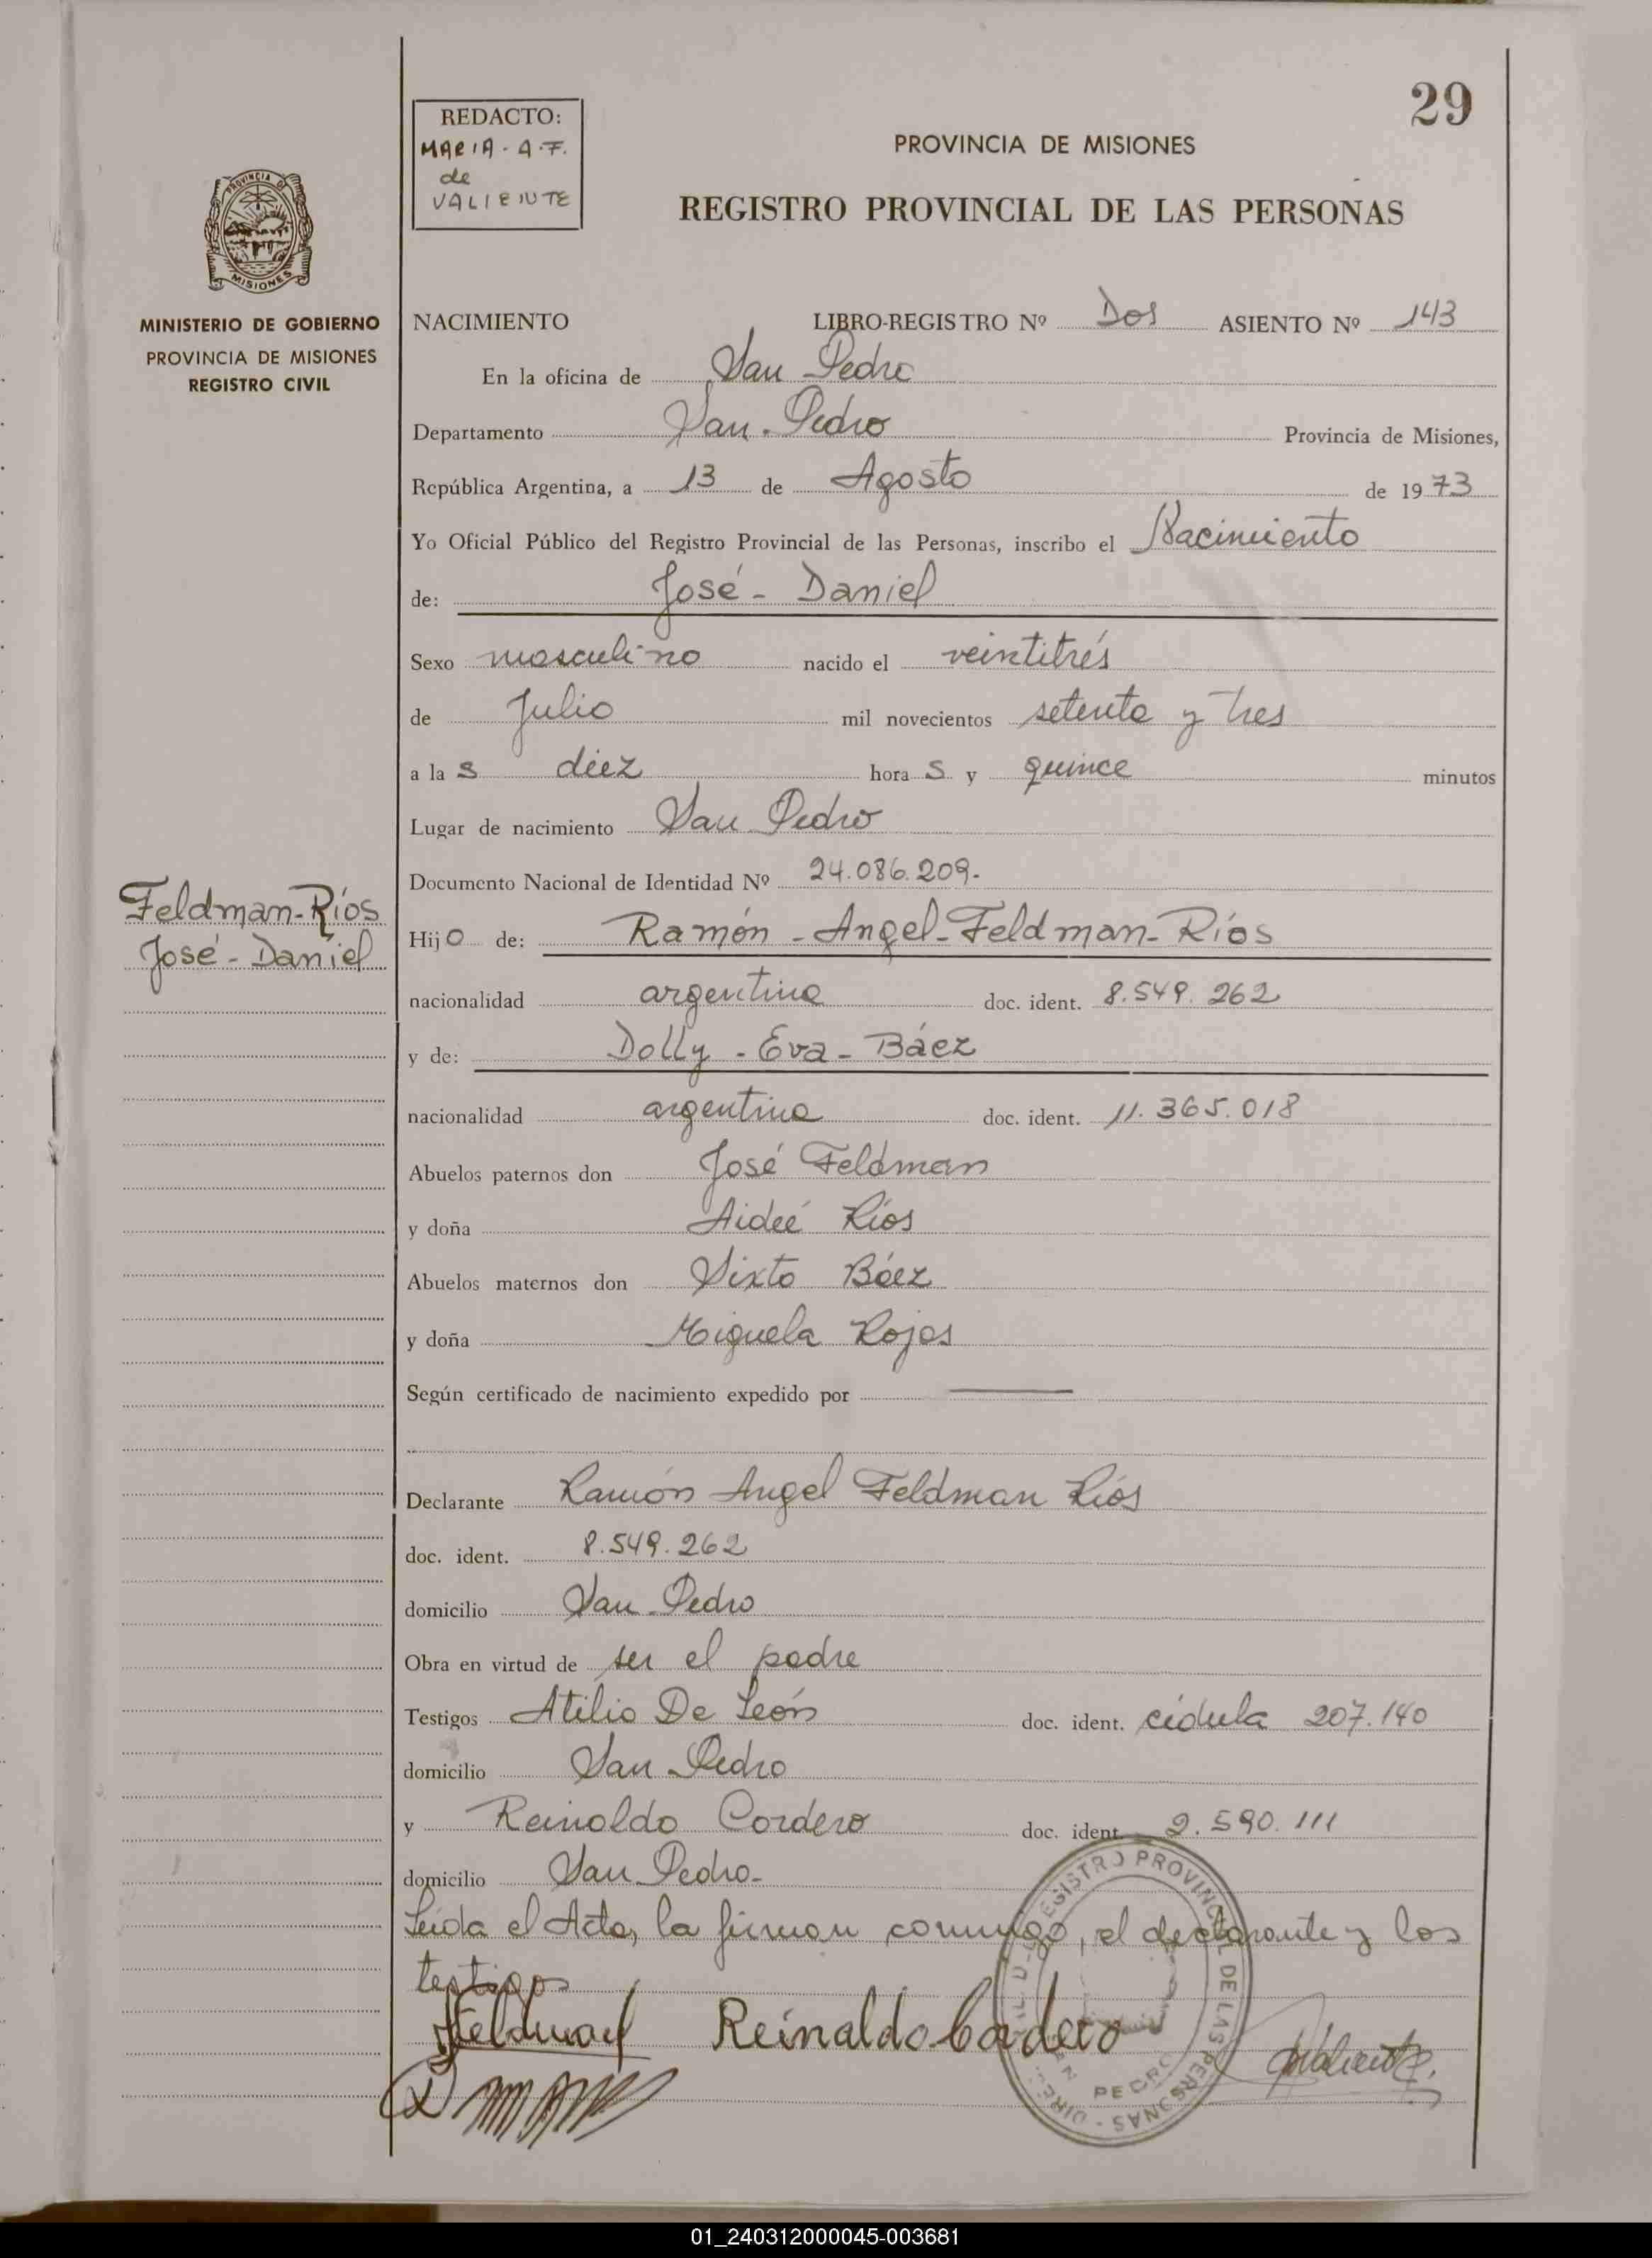 29
REDACTO:
MARIA-A.F.
de
VALIENTE
PROVINCIA DE MISIONES
REGISTRO PROVINCIAL DE LAS PERSONAS
PROVINCIA DE
MISIONES
MINISTERIO DE GOBIERNO
PROVINCIA DE MISIONES
REGISTRO CIVIL
NACIMIENTO LIBRO-REGISTRO Nº Dos ASIENTO Nº 143
En la oficina de San Pedro
Departamento San Pedro Provincia de Misiones,
República Argentina, a 13 de Agosto de 1973
Yo Oficial Público del Registro Provincial de las Personas, inscribo el Nacimiento
de: José - Daniel
Sexo masculino nacido el veintitrés
de Julio mil novecientos setenta y tres
a la s diez hora s y quince minutos
Lugar de nacimiento San Pedro
Documento Nacional de Identidad Nº 24.086.209.
Feldman-Ríos
José - Daniel
Hijo de: Ramón - Angel - Feldman - Ríos
nacionalidad argentina doc. ident. 8.549.262
y de: Dolly - Eva - Báez
nacionalidad argentina doc. ident. 11.365.018
Abuelos paternos don José Feldman
y doña Aideé Ríos
Abuelos maternos don Sixto Báez
y doña Miguela Rojas
Según certificado de nacimiento expedido por
Declarante Ramón Angel Feldman Ríos
doc. ident. 8.549.262
domicilio San Pedro
Obra en virtud de ser el padre
Testigos Atilio De León doc. ident. cédula 207.140
domicilio San Pedro
y Reinaldo Cordero doc. ident. 2.590.111
domicilio San Pedro.
Leída el Acta, la firman conmigo, el declarante y los
testigos
Feldman Reinaldo Cordero Valiente
REGISTRO PROVINCIAL DE LAS PERSONAS - DIREC.
PEDRO
01_240312000045-003681